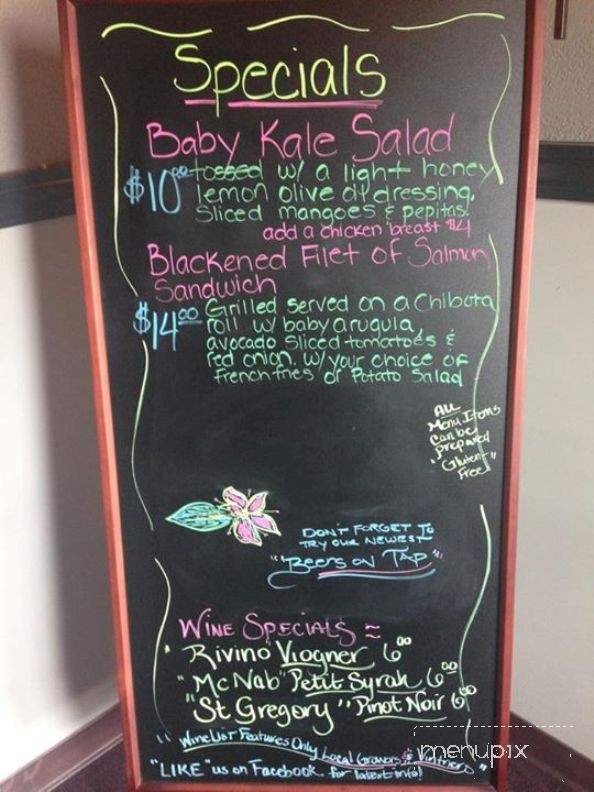 Specials
Baby Kale Salad
$10.00 tossed w/ a light honey
lemon olive oil dressing,
Sliced mangoes & pepitas.
add a chicken breast $4
Blackened Filet of Salmon
Sandwich
$14.00 Grilled served on a Chibata
roll w/ baby arugula,
avocado sliced tomatoes &
red onion. w/ your choice of
French fries or Potato Salad
All
Menu Items
can be
prepared
"Gluten"
Free
Don't Forget To
Try our Newest
"Beers on Tap"
Wine Specials ≈
"Rivino" Viogner 6.00
"McNab" Petit Syrah 6.00
"St Gregory" Pinot Noir 6.00
"Wine List Features Only Local Growers &
"LIKE" us on Facebook for latest info!
menupix